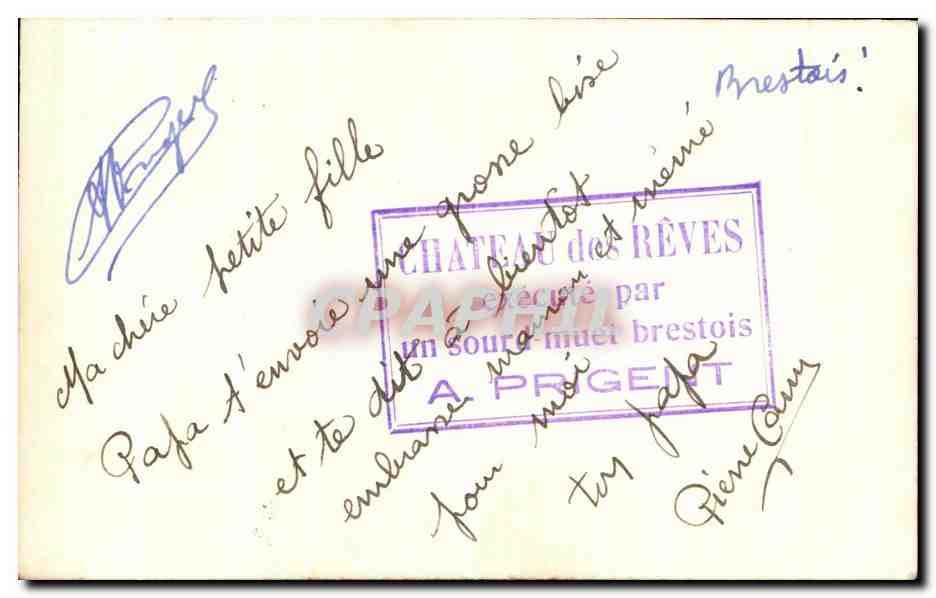 Brestois!
Ma chère petite fille
Papa t'envoie une grosse bise
et te dit à bientôt
embrasse maman et mémé
pour moi
ton papa
Pierre
CHATEAU des RÊVES
exécuté par
un sourd-muet brestois
A. PRIGENT
CPAPHIL